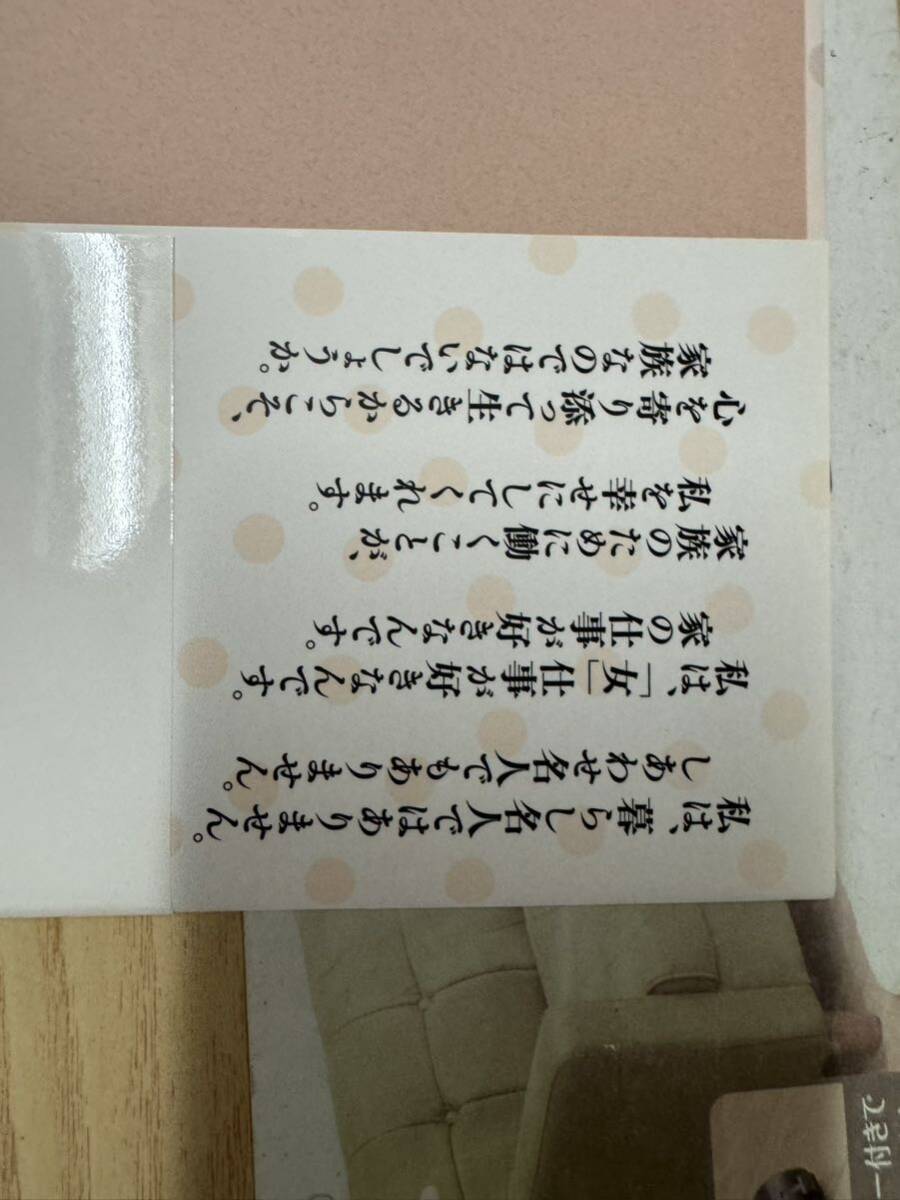 私は、暮らし名人ではありません。
しあわせ名人でもありません。
私は、「女」仕事が好きなんです。
家の仕事が好きなんです。
家族のために働くことが、
私を幸せにしてくれます。
心を寄り添って生きるからこそ、
家族なのではないでしょうか。
ー付きで